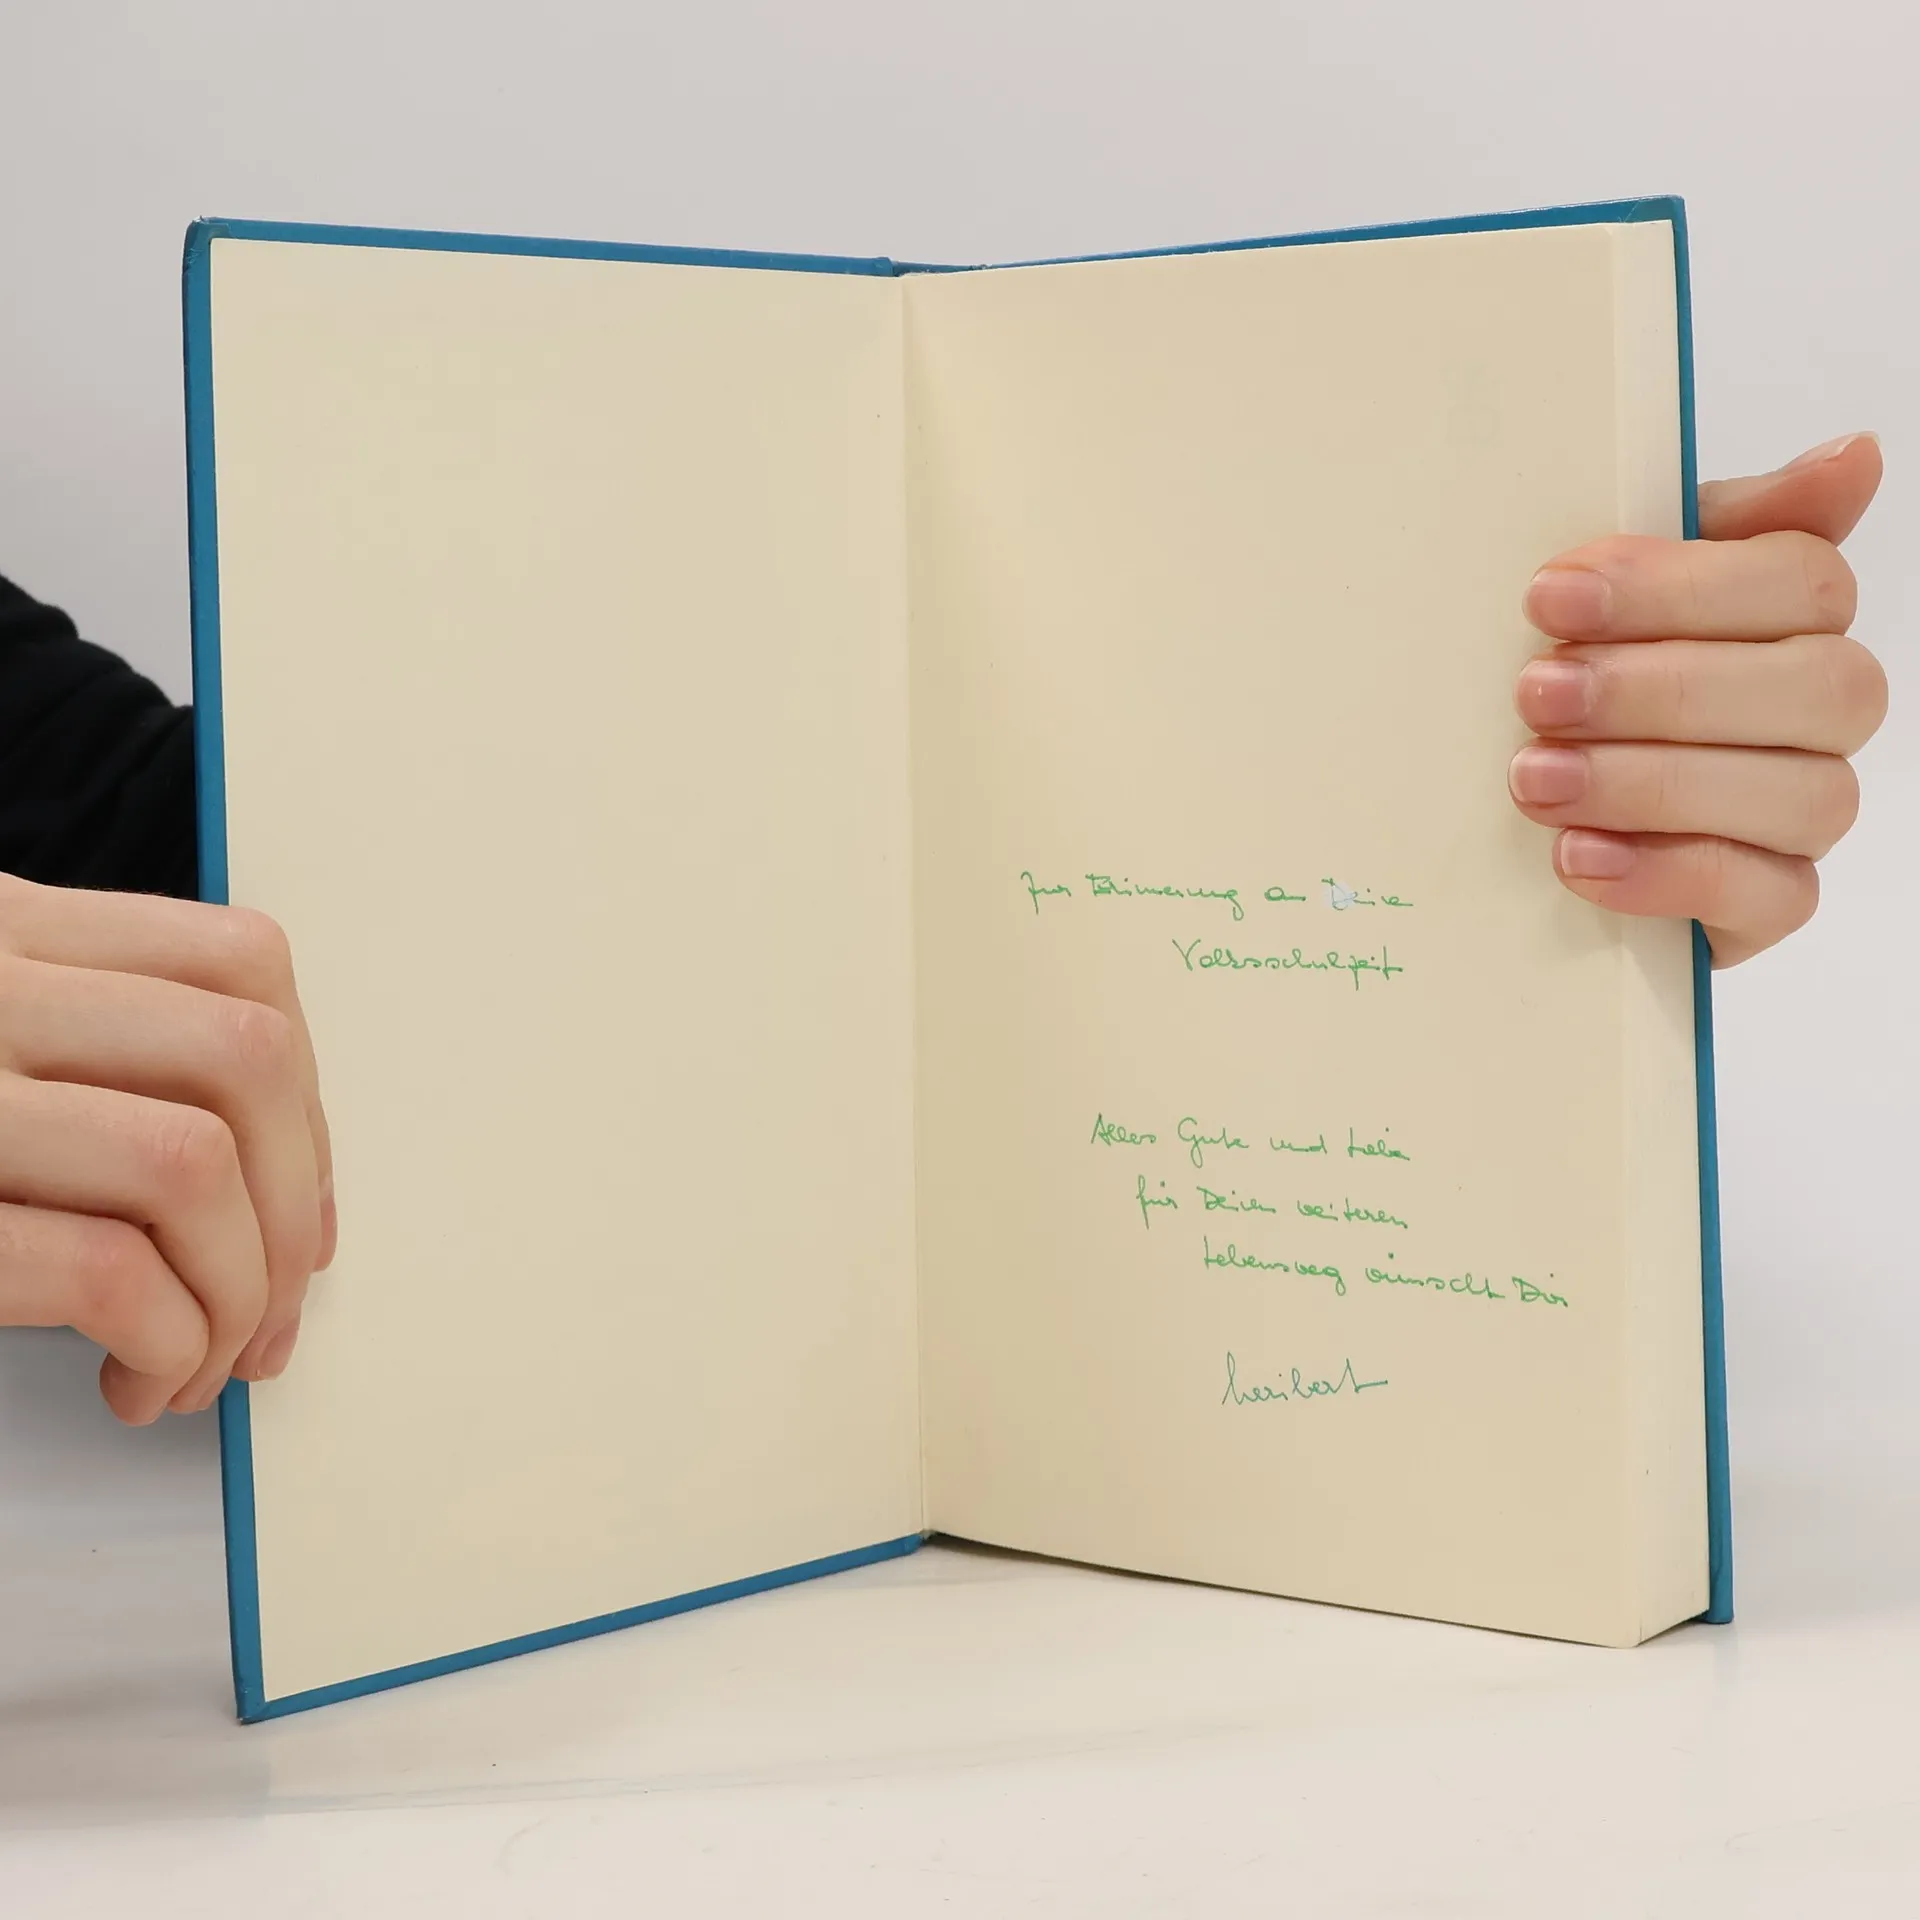 Zur Erinnerung an Deine
Volksschulzeit
Alles Gute und Liebe
für Deinen weiteren
Lebensweg wünscht Dir
heribert